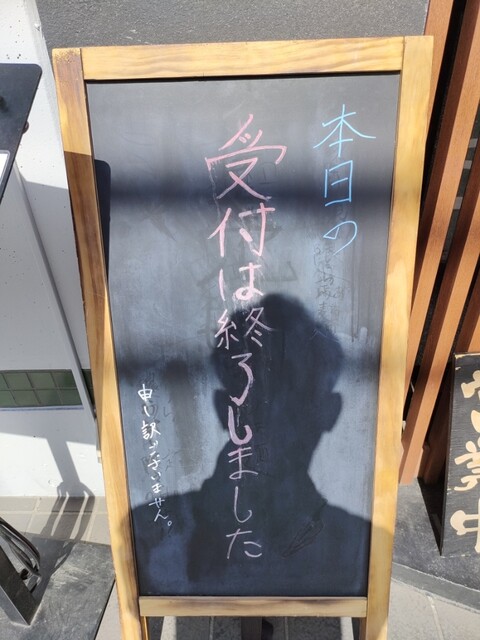 本日の
受付は終了しました
申し訳ございません。
業中